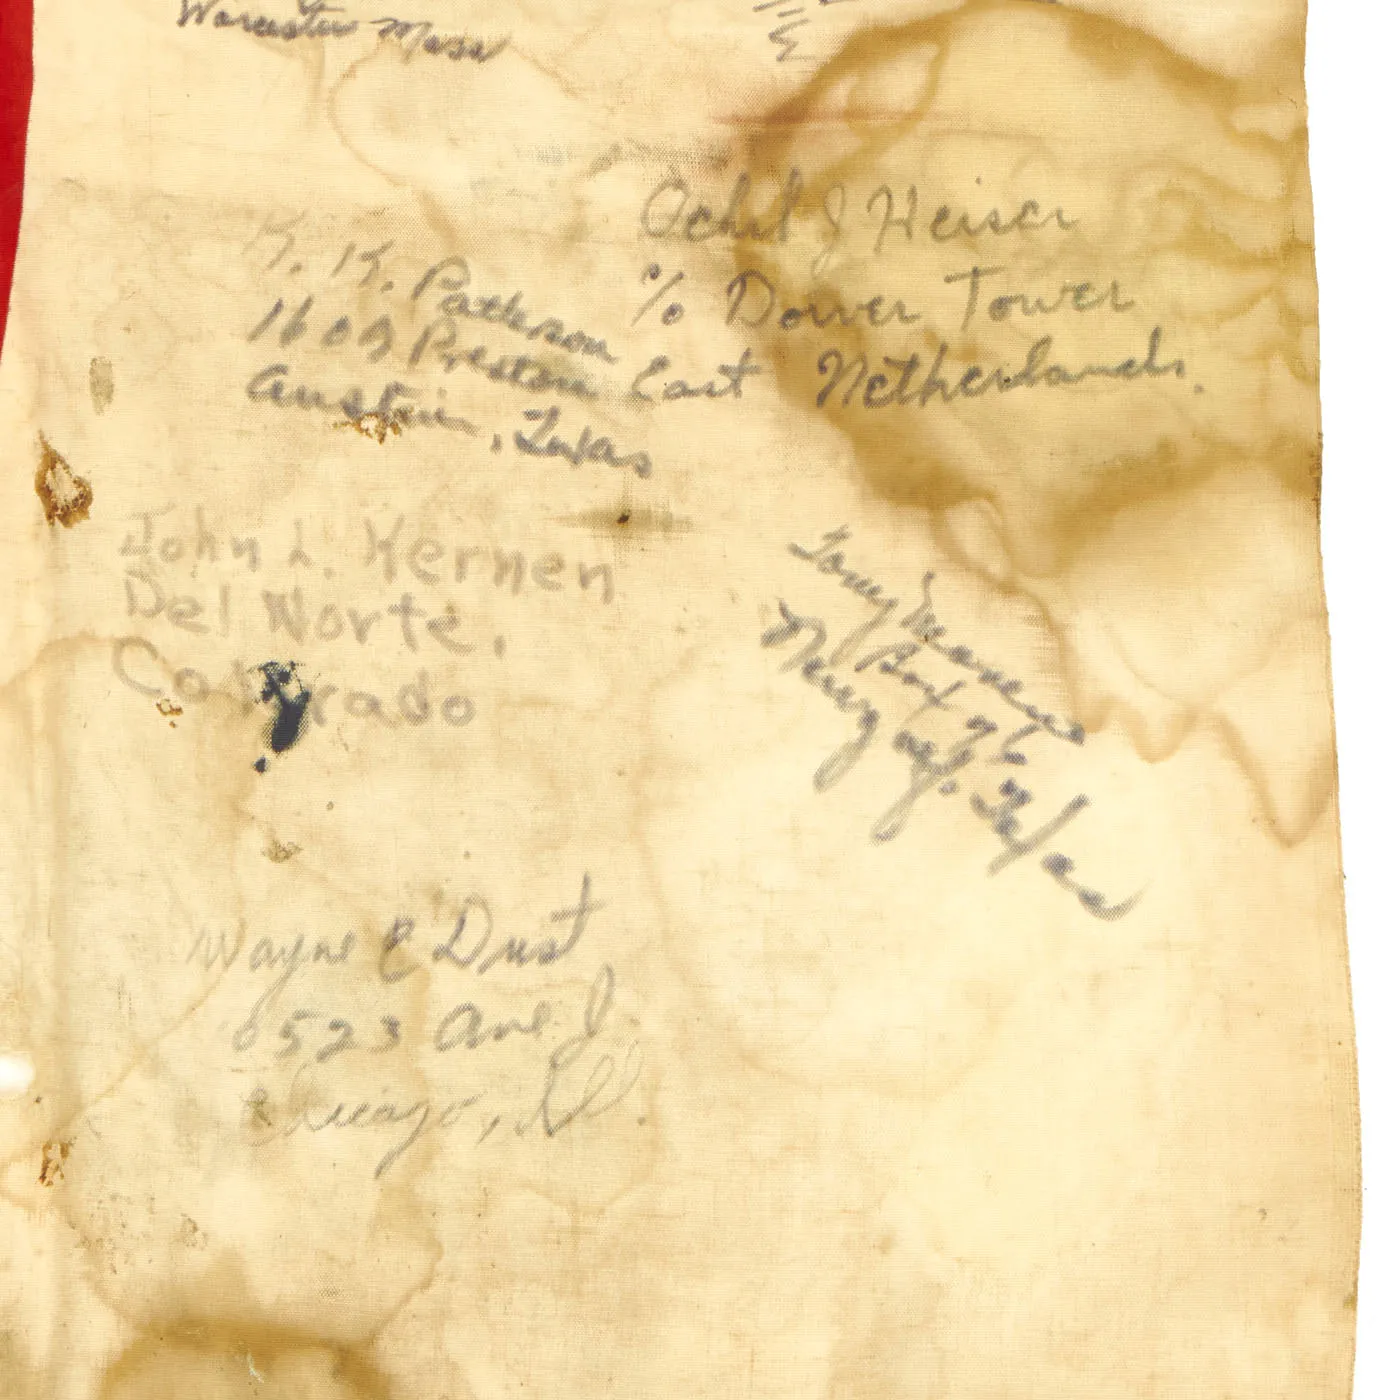 Worcester Mass
Ochel J Heiser
% Dower Tower
East Netherlands.
K. K. Patterson
1609 Preston
Austin, Texas
John L. Kernen
Del Norte,
Colorado
Tony
Box 76
Texas
Wayne C Dust
6523 Ave J
Chicago, Ill.